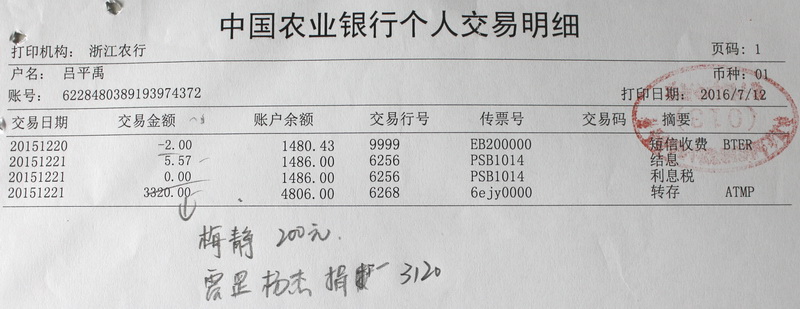 中国农业银行个人交易明细
打印机构： 浙江农行 页码：1
户名： 吕平禹 币种：01
账号： 6228480389193974372 打印日期： 2016/7/12
交易日期 交易金额 账户余额 交易行号 传票号 交易码 摘要
20151220 -2.00 1480.43 9999 EB200000 短信收费 BTER
20151221 5.57 1486.00 6256 PSB1014 结息
20151221 0.00 1486.00 6256 PSB1014 利息税
20151221 3320.00 4806.00 6268 6ejy0000 转存 ATMP
梅静 200元.
杨杰 捐 3120